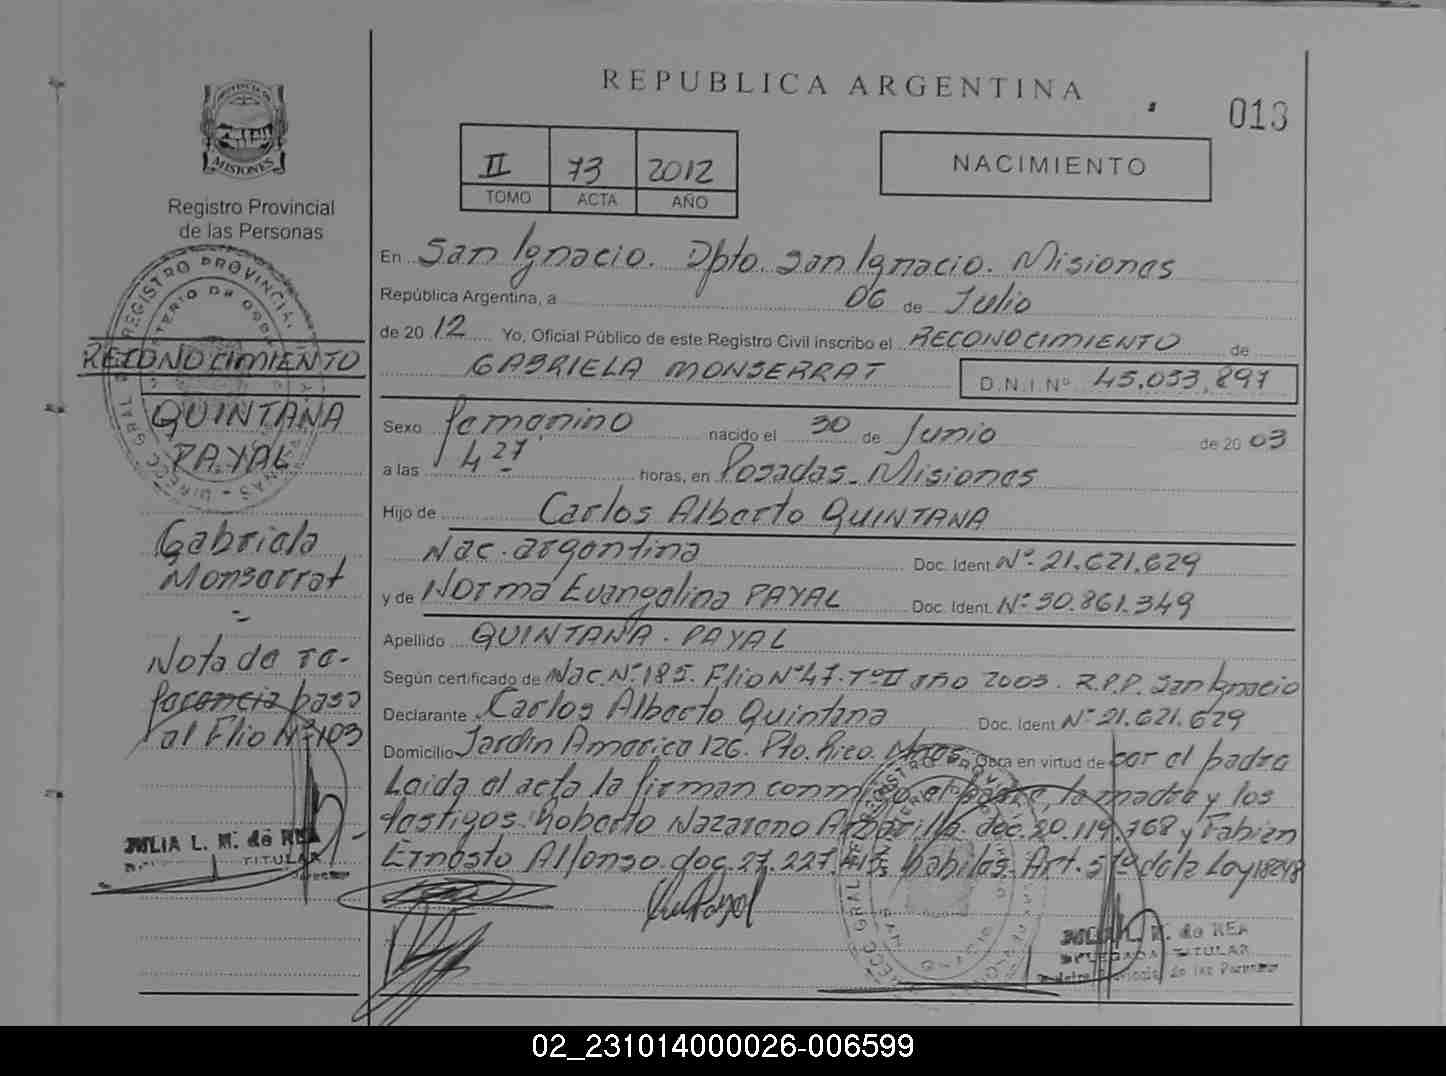 REPUBLICA ARGENTINA
013
MISIONES
Registro Provincial
de las Personas
II 73 2012
TOMO ACTA AÑO
NACIMIENTO
RECONOCIMIENTO
QUINTANA
PAYAL
Gabriela
Monserrat
Nota de re-
ferencia pasa
al Flio Nº 103
JULIA L. M. de REA
TITULAR
En San Ignacio. Dpto. San Ignacio. Misiones
República Argentina, a 06 de Julio
de 2012 Yo, Oficial Público de este Registro Civil inscribo el RECONOCIMIENTO de
GABRIELA MONSERRAT D.N.I Nº 45.053.897
Sexo femenino nacido el 30 de Junio de 2003
a las 4 27 horas, en Posadas - Misiones
Hijo de Carlos Alberto QUINTANA
Nac. argentina Doc. Ident. Nº 21.621.629
y de Norma Evangelina PAYAL Doc. Ident. Nº 30.861.349
Apellido QUINTANA - PAYAL
Según certificado de Nac. Nº 185. Flio Nº 47. Tº II año 2003. R.P.P. San Ignacio
Declarante Carlos Alberto Quintana Doc. Ident Nº 21.621.629
Domicilio Jardin America 126. Pto. Rico. Mnes. Obra en virtud de ser el padre
Leida el acta la firman conmigo el padre, la madre y los
testigos Roberto Nazareno doc. 20.119.768 y Fabian
Ernesto Alfonso doc. 27.227. habiles. Art. 51º de la Ley 18248
JULIA L. M. de REA
DELEGADA TITULAR
02_231014000026-006599